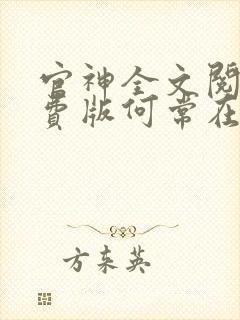 官神全文阅
费版何常在
方东英